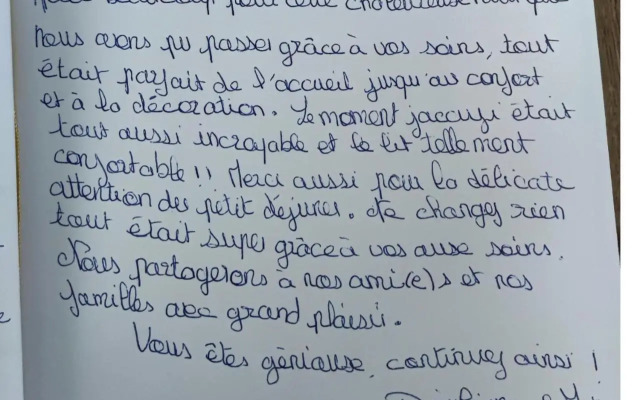 beaucoup pour cette chaleureuse nuit que
nous avons pu passer grâce à vos soins, tout
était parfait de l'accueil jusqu'au confort
et à la décoration. Le moment jaccuzi était
tout aussi incroyable et le lit tellement
confortable !! Merci aussi pour la délicate
attention du petit déjuner. Ne changez rien
tout était super grâce à vos ause soins.
Nous partagerons à nos ami(e)s et nos
familles avec grand plaisir.
Vous êtes géniause, continuez ainsi !